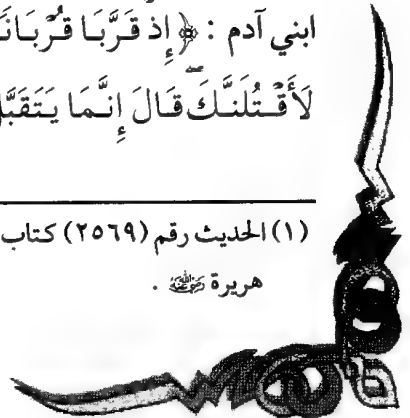 ابني آدم : ﴿ إِذْ قَرَّبَا قُرْبَانًا
لَأَقْتُلَنَّكَ قَالَ إِنَّمَا يَتَقَبَّلُ
(١) الحديث رقم (٢٥٦٩) كتاب
هريرة رضي الله عنه .